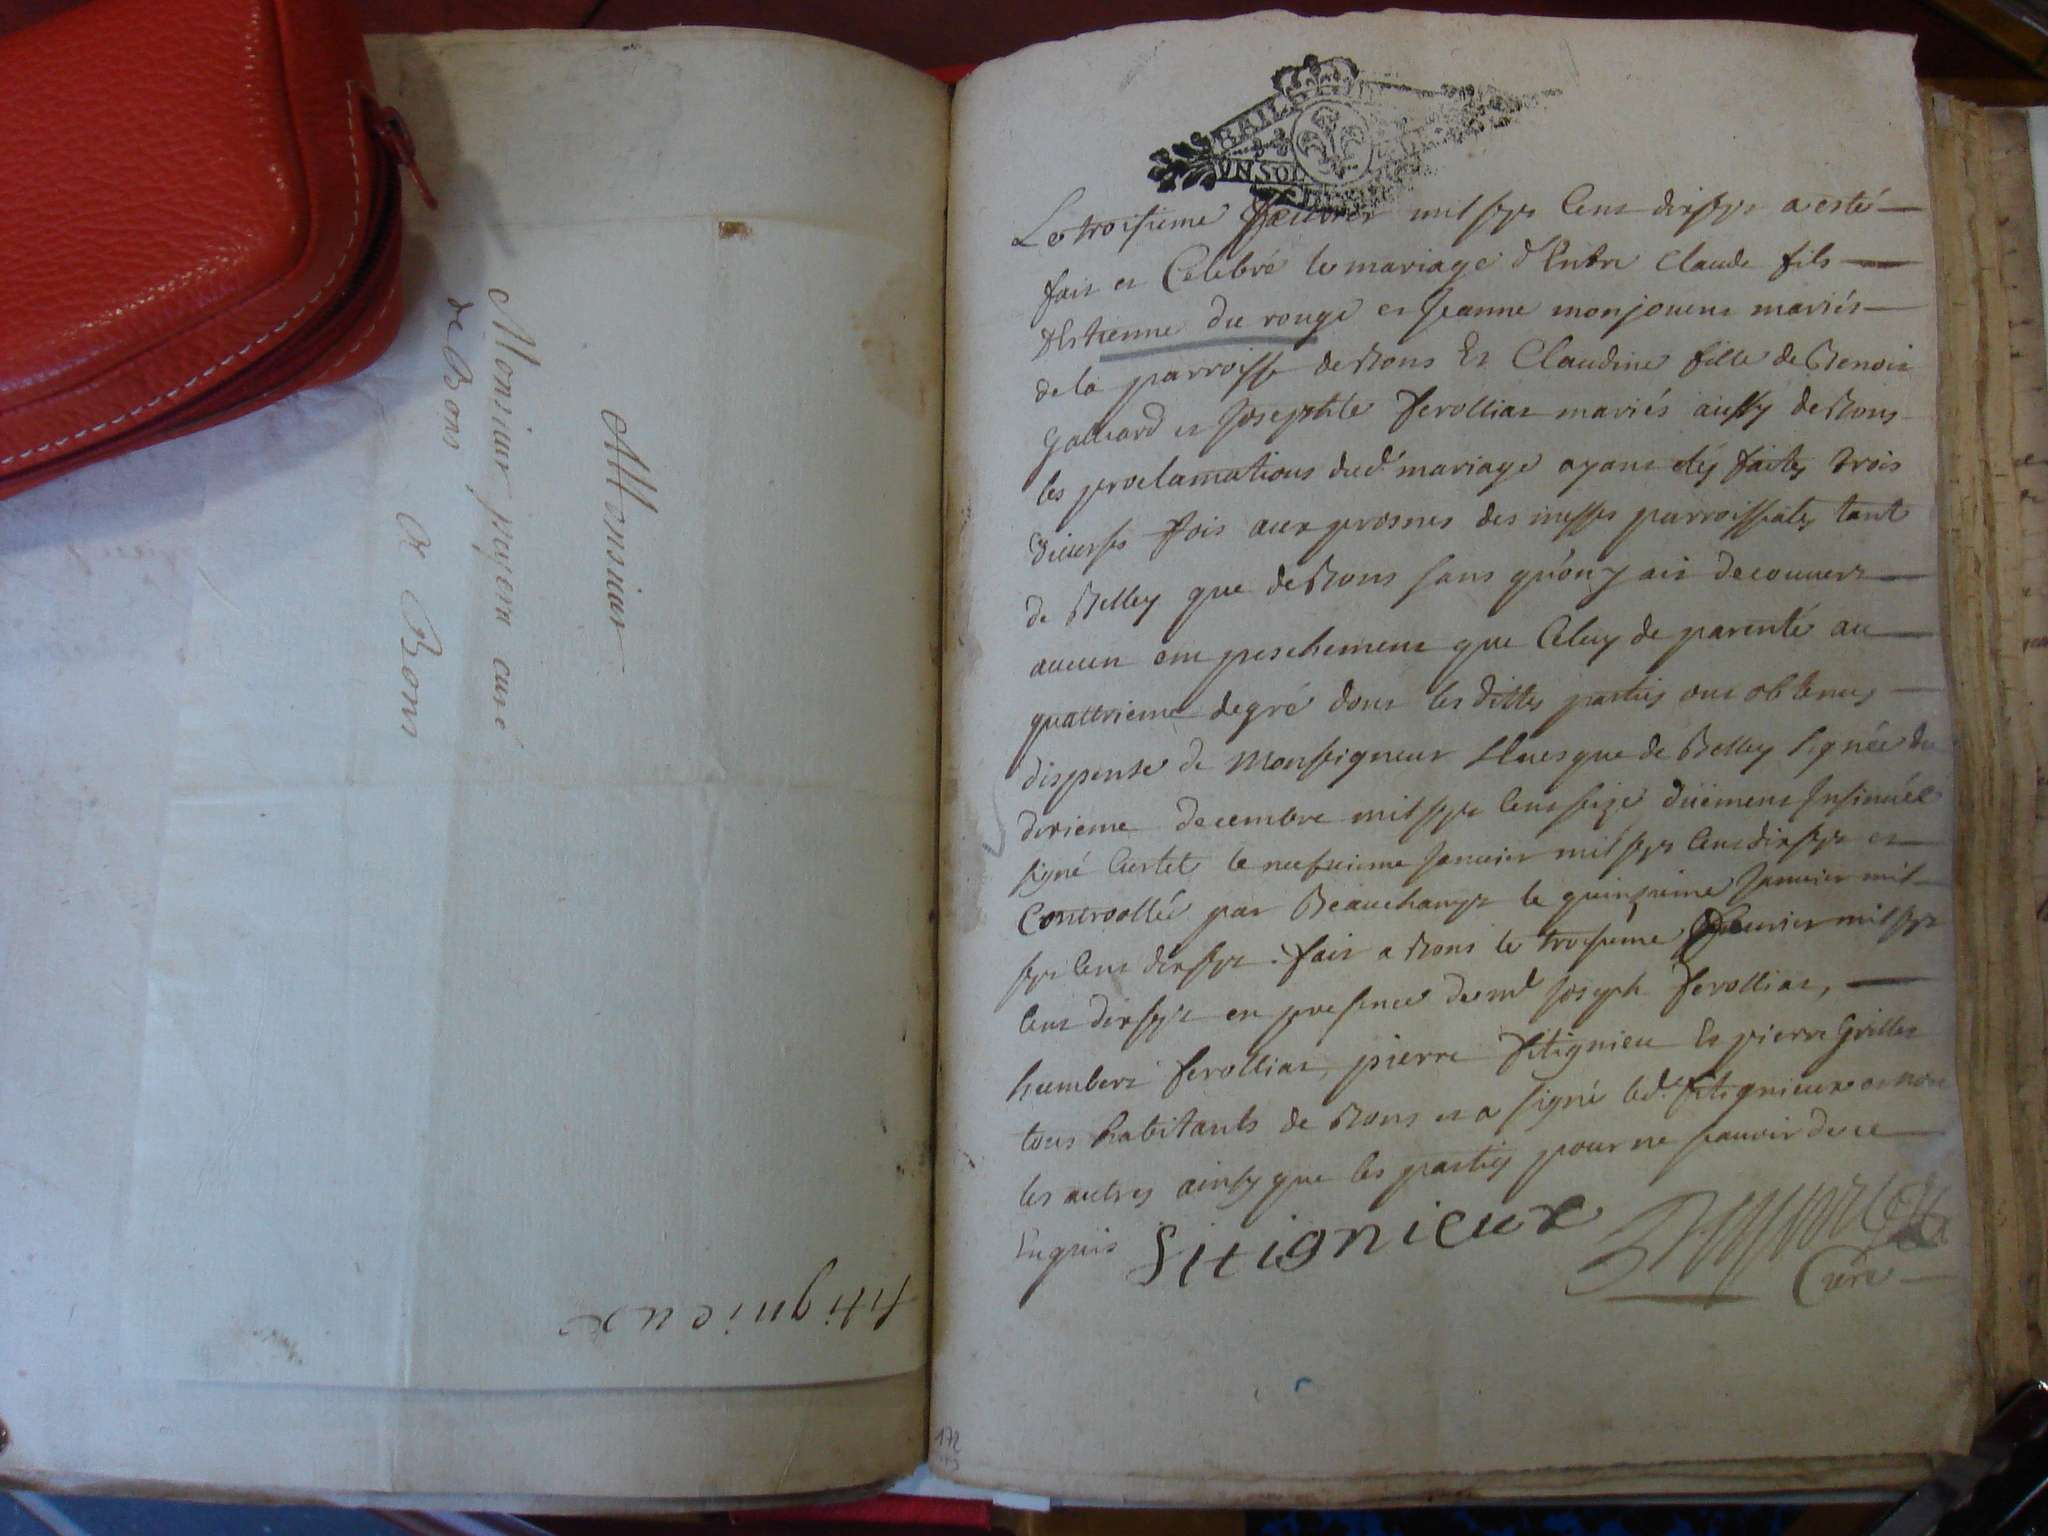 Monsieur
Monsieur curé
de Bons
A Bons
fitignieux
BAIL
VN SOL
Le troisieme feuvrier mil sept cent dix sept a esté
fait et Celebré le mariage d'Entre Claude fils
d'Estienne du rouge et Jeanne monjouent mariés
de la parroisse de Bons Et Claudine fille de Benoit
Galliard et Josephte ferolliat mariés aussy de Bons
les proclamations dud.t mariage ayant etés faites trois
diverses fois aux prosnes des messes parroissiales tant
de Belley que de Bons sans qu'on y ait decouvert
aucun empeschement que Celuy de parenté au
quattrieme degré dont les dittes parties ont obtenus
dispense de Monseigneur l'Euesque de Belley signée du
dixieme decembre mil sept cent seize düement Insinuée
signé Curtet le neufuieme Januier mil sept cent dix sept et
Controollée par Beauchamp le quinzieme Januier mil
sept cent dix sept. fait a Bons le troisieme feurier mil sept
cent dix sept en presence de m.e Joseph ferolliat,
humbert ferolliat, pierre fitignieu Et pierre Grillet
tous habitants de Bons et a signé led. fitignieux et non
les autres ainsy que les parties pour ne scauoir de ce
Enquis fitignieux
Curé
172